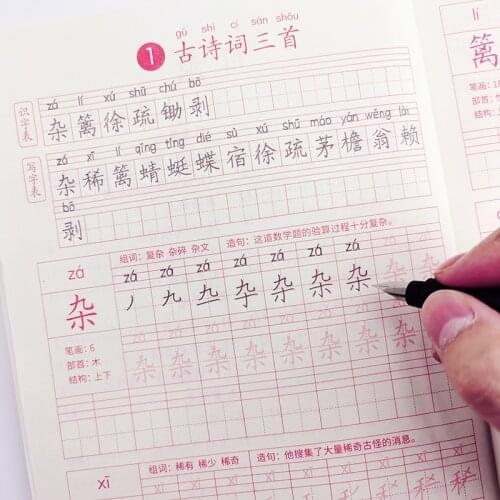 gǔ shī cí sān shǒu
1 古诗词三首
识字表
zá lí xú shū chú bō
杂 篱 徐 疏 锄 剥
写字表
zá xī lí qīng tíng dié sù xú shū máo yán wēng lài
杂 稀 篱 蜻 蜓 蝶 宿 徐 疏 茅 檐 翁 赖
bō
剥
zá
组词：复杂 杂碎 杂文 造句：这道数学题的验算过程十分复杂。
zá zá zá zá zá zá zá
杂
丿 九 杂 杂 杂 杂 杂 杂
笔画：6
部首：木
结构：上下
zá zá zá zá zá zá
杂 杂 杂 杂 杂 杂 杂 杂
xī
组词：稀有 稀少 稀奇 造句：他搜集了大量稀奇古怪的消息。
xī xī xī xī
lí
篱